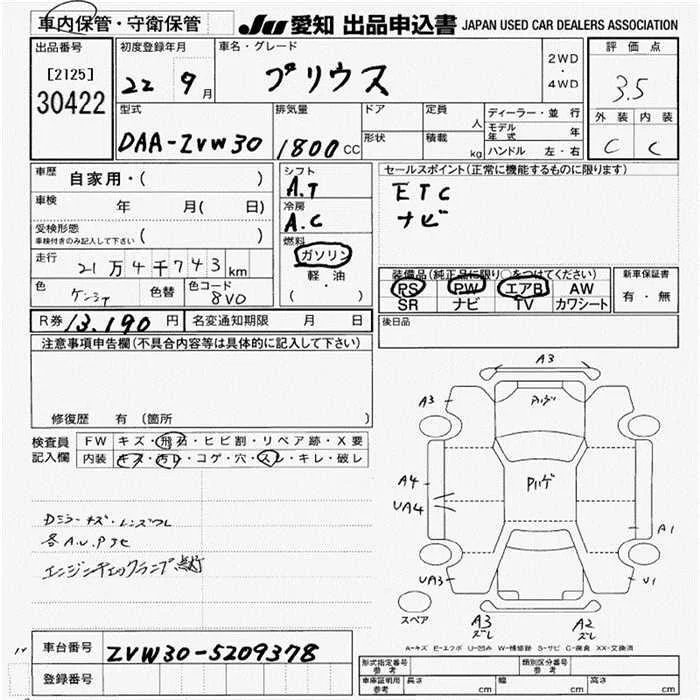 車内保管・守衛保管
JU 愛知 出品申込書 JAPAN USED CAR DEALERS ASSOCIATION
出品番号
[2125]
30422
初度登録年月
22 9月
車名・グレード
プリウス
2WD
・
4WD
評価点
3.5
外装 内装
C C
型式
DAA-ZVW30
排気量
1800 CC
ドア
形状
定員 人
積載 kg
ディーラー・並行
モデル年式 年
ハンドル 左・右
車歴 自家用・( )
車検 年 月( 日)
受検形態
車検付きのみ記入して下さい ( )
走行 21万4千743km
色 色替 色コード
8V0
シフト
A.T
冷房
A.C
燃料
ガソリン
軽・油
( )
セールスポイント(正常に機能するものに限ります)
ETC
ナビ
装備品(純正品に限り○をつけてください)
PS PW エアB AW
SR ナビ TV カワシート
新車保証書
有・無
R券 13,190 円 名変通知期限 月 日
後日品
注意事項申告欄(不具合内容等は具体的に記入して下さい)
修復歴 有 (箇所 )
検査員
記入欄
FW キズ・飛石・ヒビ割・リペア跡・X要
内装 キズ・汚レ・コゲ・穴・スレ・キレ・破レ
各A.U.P
エンジンチェックランプ点灯
A3
A3
A4
UA4
A1
UA3
U1
スペア
A3
ズレ
A2
ズレ
A-キズ E-エクボ U-凹み W-補修跡 S-サビ C-腐食 XX-交換済
車台番号 ZVW30-5209378
登録番号
形式指定番号
参考
類別区分番号
参考
車庫証明用
参考
長さ cm 幅 cm 高さ cm